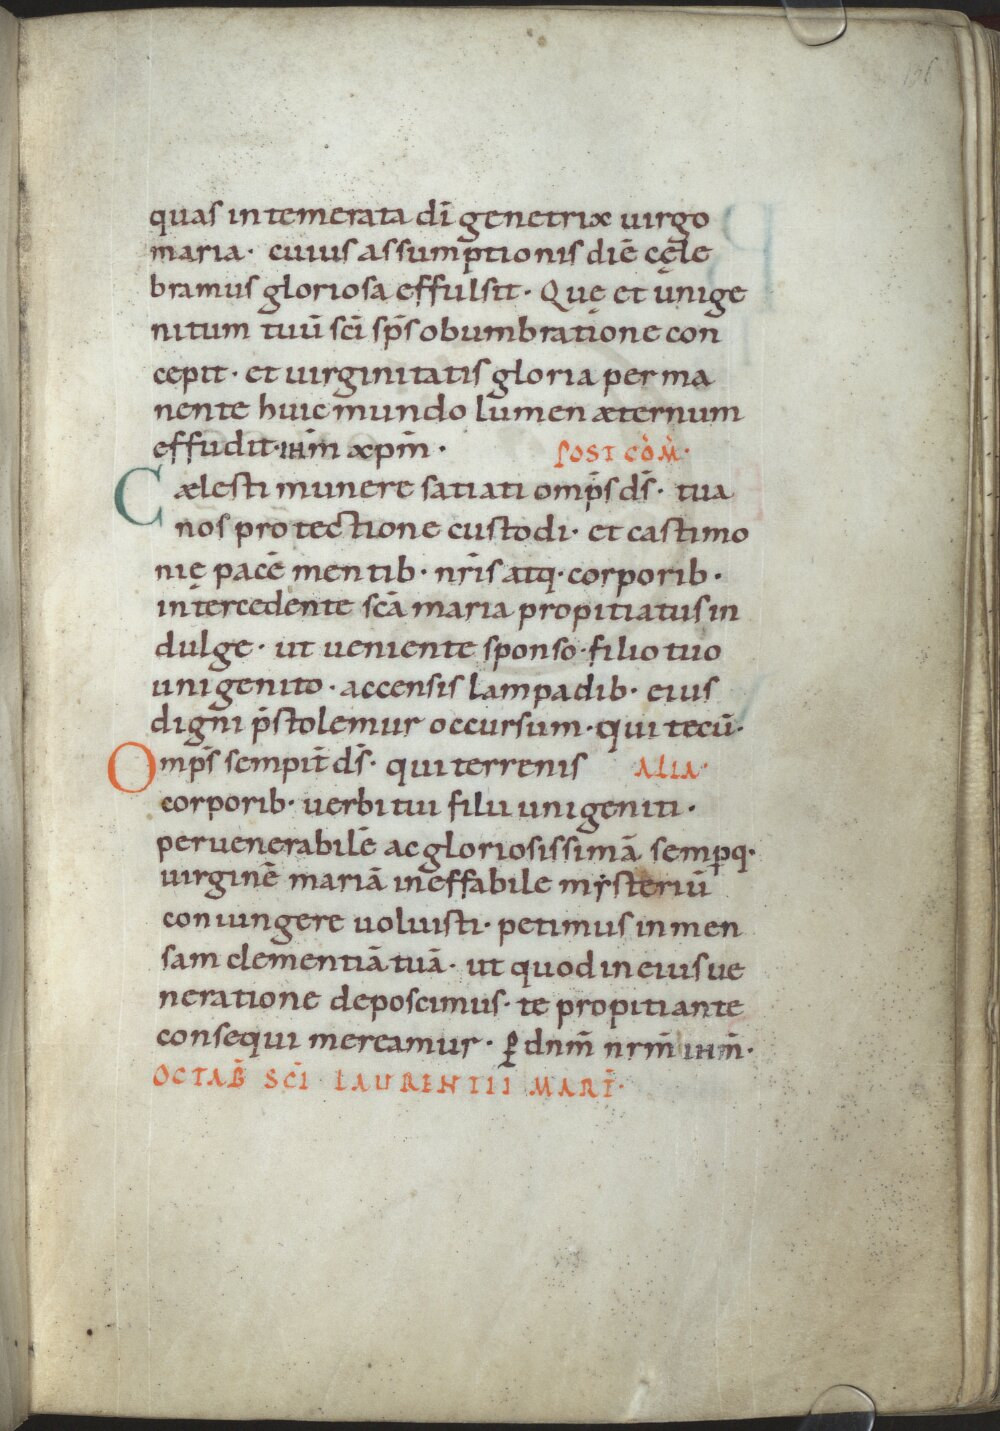 196
quas intemerata dī genetrix uirgo
maria· cuius assumptionis diē cęle
bramus gloriosa effulsit· Quę et unige
nitum tuū sc̄i sp̄s obumbratione con
cepit· et uirginitatis gloria perma
nente huic mundo lumen æternum
effudit· ιηm̄ xpm̄· POST CŌM̄·
Cælesti munere satiati omp̄s ds̄· tua
nos protectione custodi· et castimo
nię pacē mentib· nr̄is atq· corporib·
intercedente sc̄a maria propitiatus in
dulge· ut ueniente sponso· filio tuo
unigenito· accensis lampadib· eius
digni p̄stolemur occursum· qui tecū·
Omp̄s sempit̄ ds̄· qui terrenis ALIA·
corporib· uerbi tui filii unigeniti·
per uenerabilē ac gloriosissimā semꝑq·
uirginē mariā ineffabile mẏsteriū
coniungere uoluisti· petimus inmen
sam clementiā tuā· ut quod in eius ue
neratione deposcimus· te propitiante
consequi mereamur· ꝑ dnm̄ nrm̄ ιηm̄·
OCTAB̄ SC̄I LAURENTII MART̄·